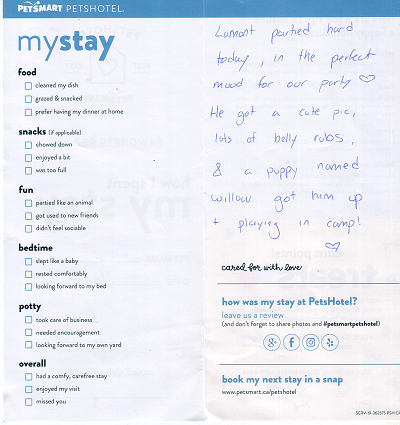 PETSMART PETSHOTEL.
mystay
food
cleaned my dish
grazed & snacked
prefer having my dinner at home
snacks (if applicable)
chowed down
enjoyed a bit
was too full
fun
partied like an animal
got used to new friends
didn't feel sociable
bedtime
slept like a baby
rested comfortably
looking forward to my bed
potty
took care of business
needed encouragement
looking forward to my own yard
overall
had a comfy, carefree stay
enjoyed my visit
missed you
Lamont partied hard
today, in the perfect
mood for our party ♡
He got a cute pic,
lots of belly rubs,
& a puppy named
willow got him up
+ playing in camp!
♡
cared for with love
how was my stay at PetsHotel?
leave us a review
(and don't forget to share photos and #petsmartpetshotel)
book my next stay in a snap
www.petsmart.ca/petshotel